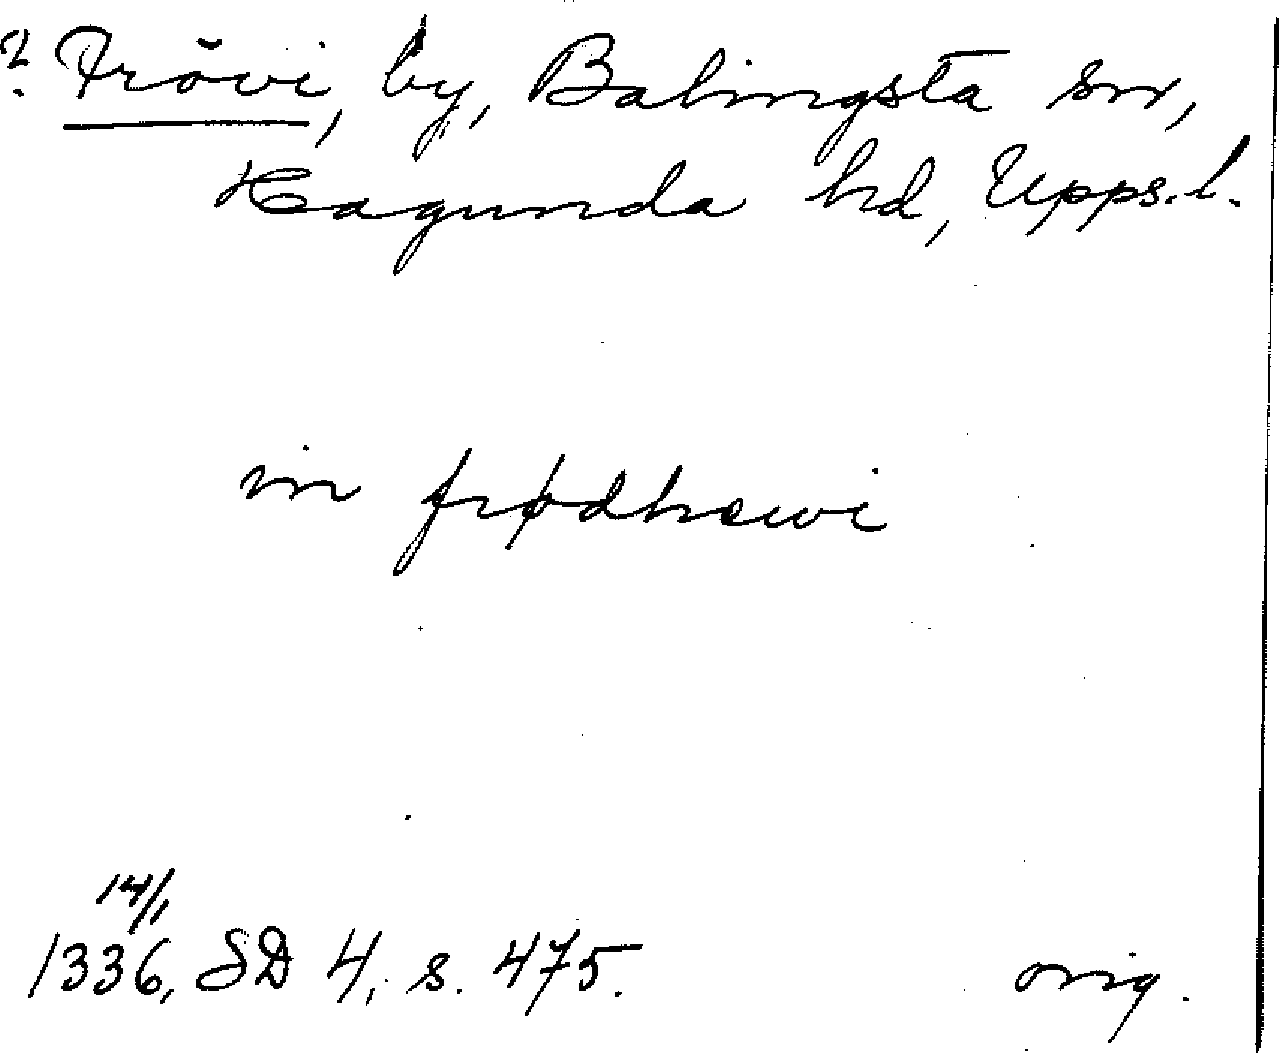 ? Frövi, by, Balingsta sn,
Hagunda hd, Upps. l.
in frødhæwi
14/1
1336, SD 4, s. 475. orig.